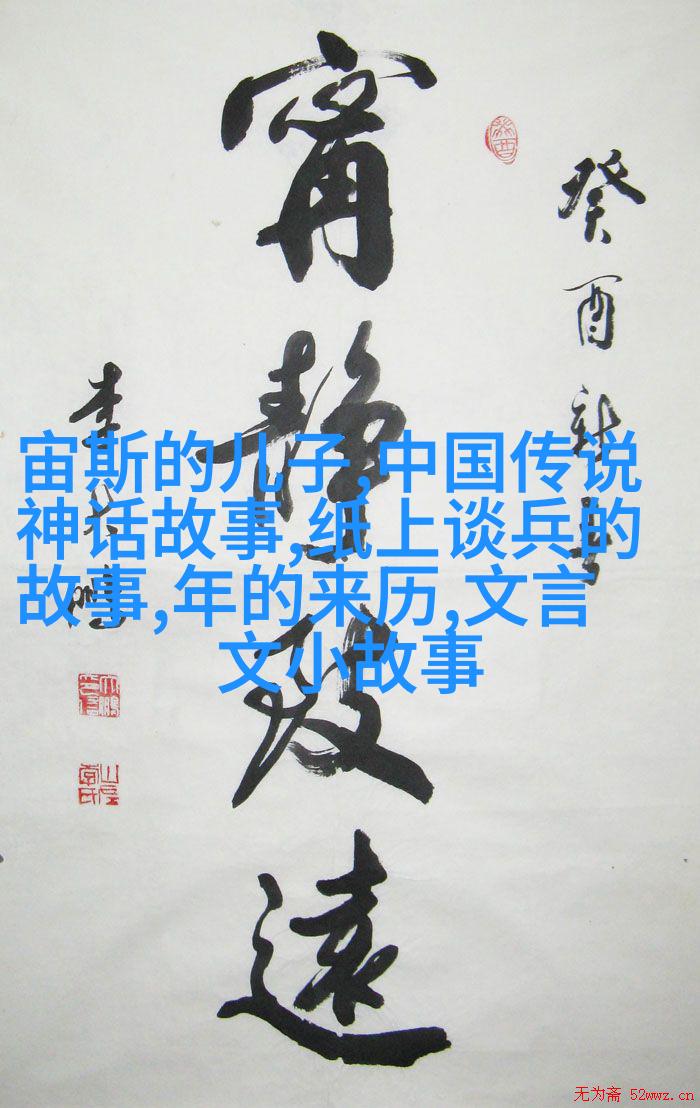 癸酉新
甯靜致遠
李
宙斯的儿子,中国传说
神话故事,纸上谈兵的
故事,年的来历,文言
文小故事
无为斋 52wwz.cn